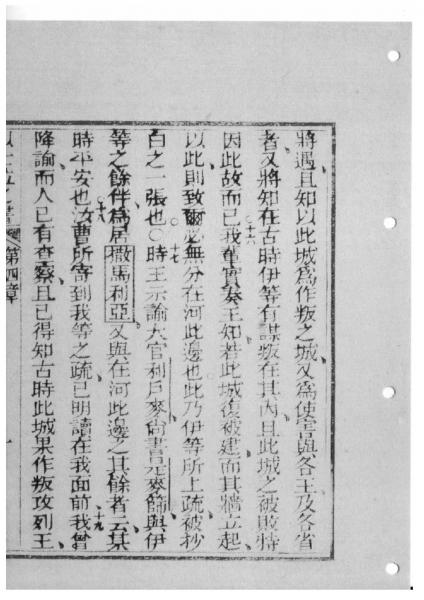 將遇且知以此城爲作叛之城又爲使害與各王及各省
者又將知在古時伊等有謀叛在其內且此城之被敗特
因此故而已十六我輩實奏王知若此城復被建而其牆立起
以此則致爾必無分在河此邊也此乃伊等所上疏被抄
白之一張也○十七時王示諭大官利戶麥尙書示麥篩與伊
等之餘伴爲居撒馬利亞又與在河此邊之其餘者云某
時平安也十八汝曹所寄到我等之疏已明讀在我面前十九我曾
降諭而人已有查察且已得知古時此城果作叛攻列王
以士拉之書 第四章